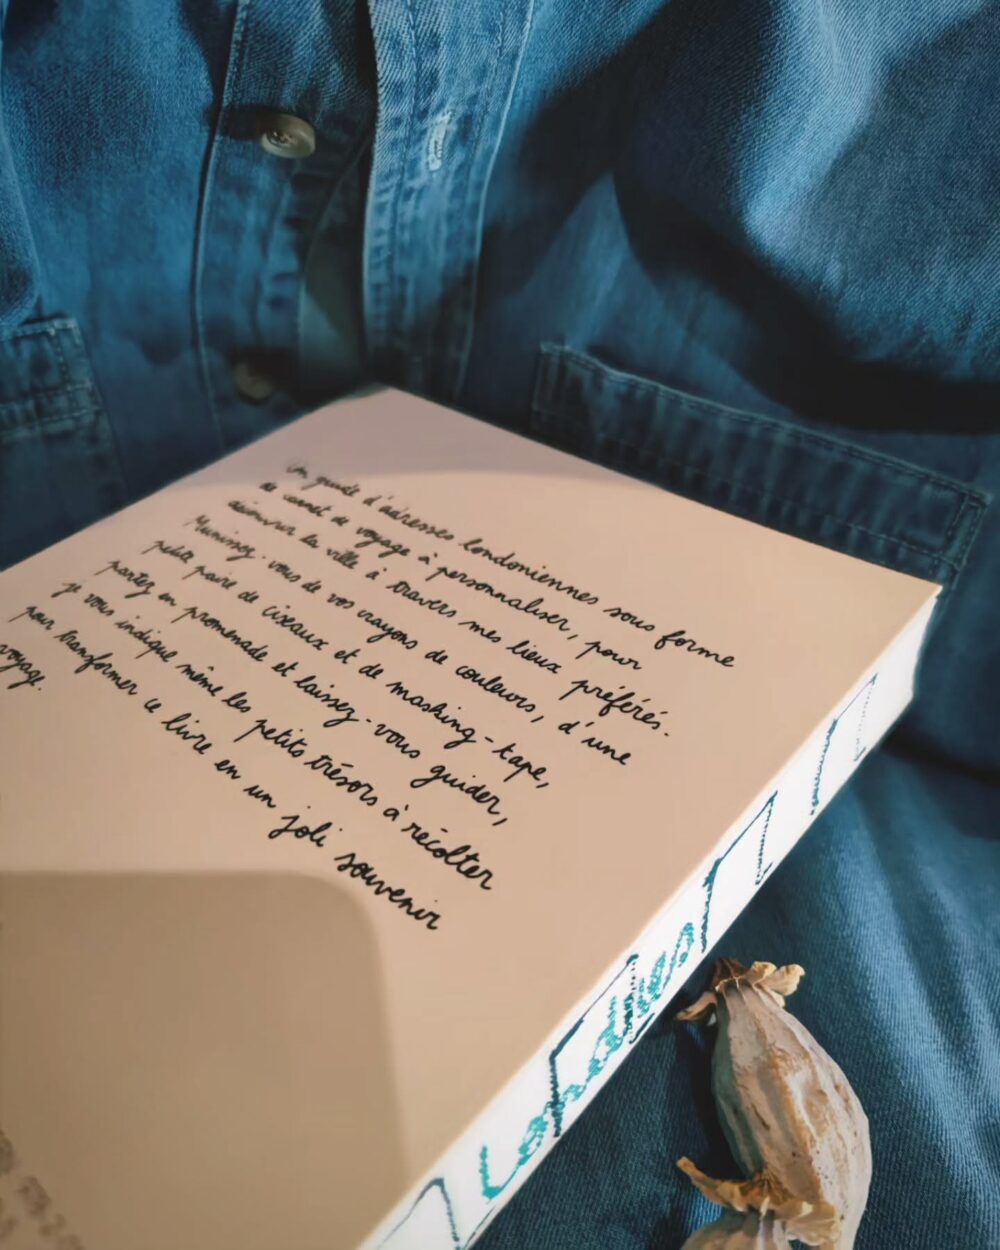 Un guide d'adresses londoniennes sous forme
de carnet de voyage à personnaliser, pour
découvrir la ville à travers mes lieux préférés.
Munissez-vous de vos crayons de couleurs, d'une
petite paire de ciseaux et de masking-tape,
partez en promenade et laissez-vous guider,
je vous indique même les petits trésors à récolter
pour transformer ce livre en un joli souvenir
voyage.
Londres